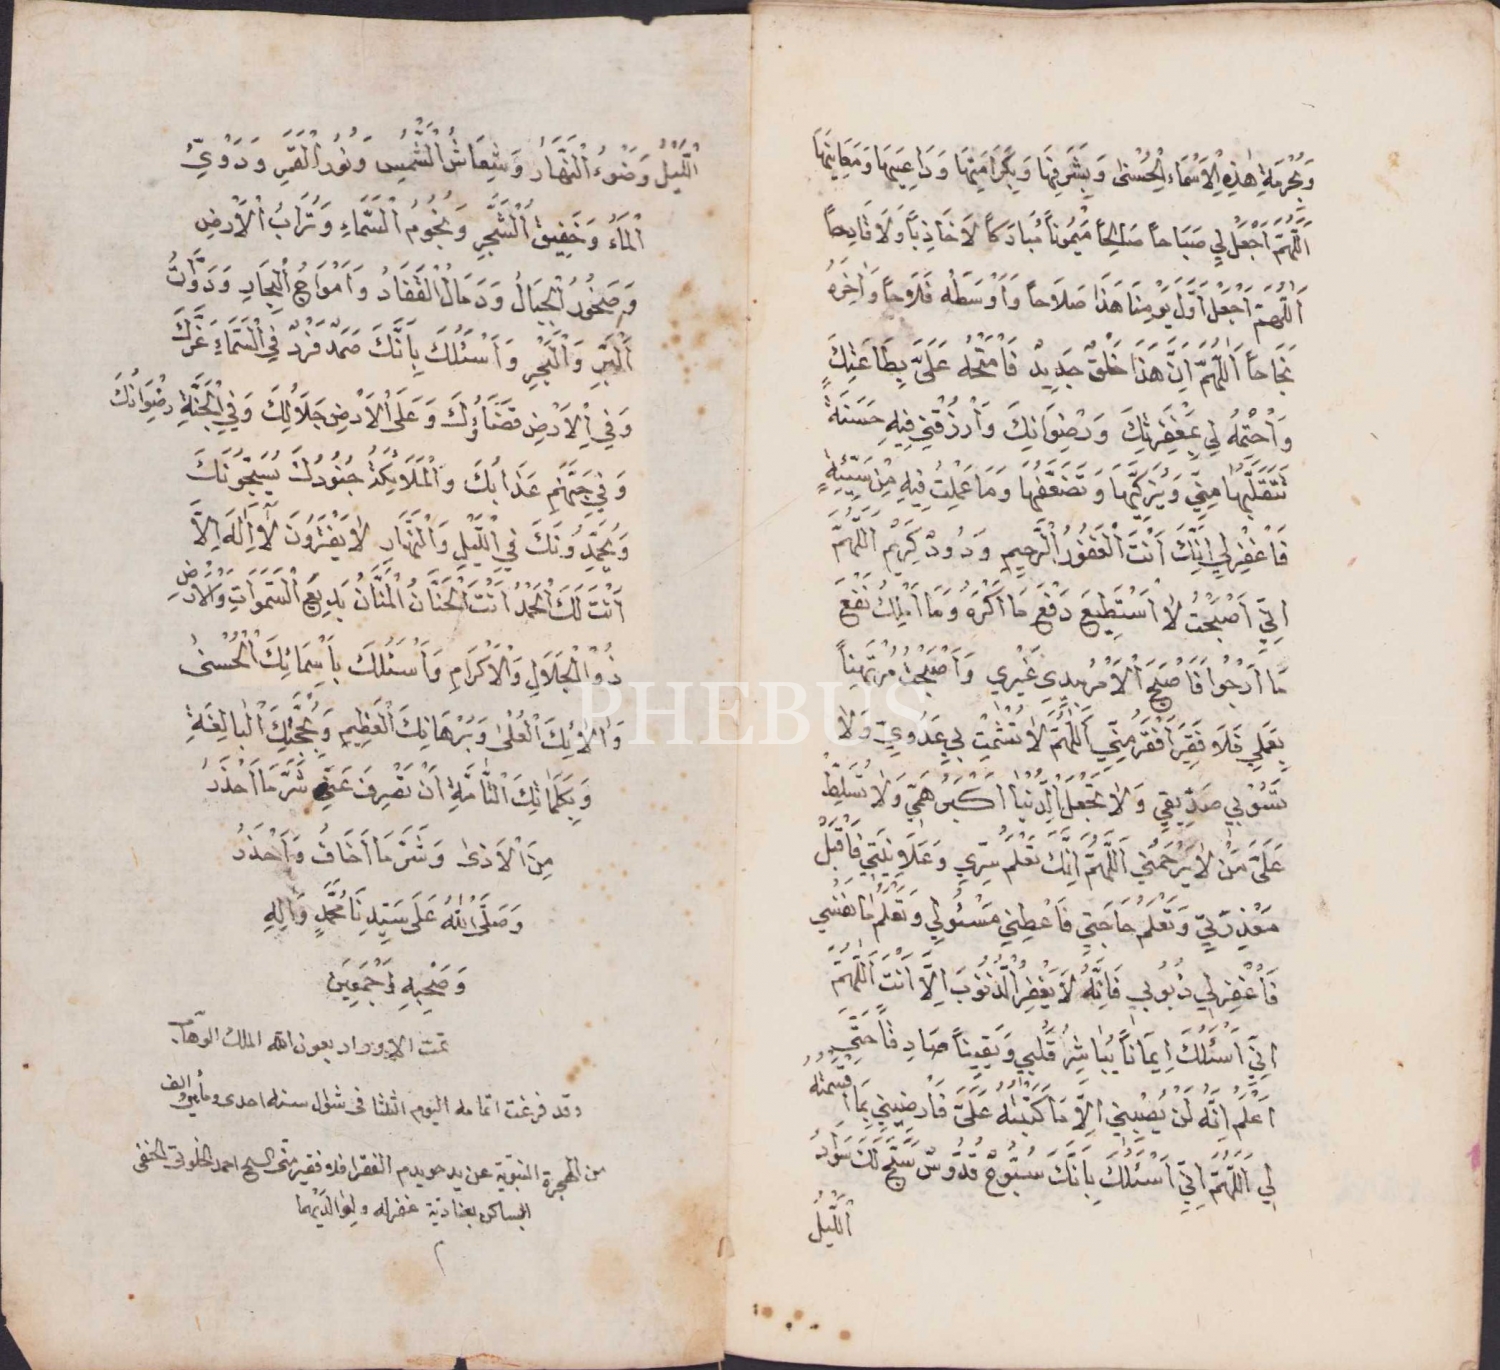 وَبِحُرْمَةِ هٰذِهِ الْاَسْمَاءِ الْحُسْنٰى وَبِشَرَفِهَا وَبِكَرَامَتِهَا وَدَاعِيهَا وَمَعَانِيهَا
اَللّٰهُمَّ اَجْعَلْ لِي صَبَاحاً صَالِحاً مَيْمُوناً مُبَارَكاً لَا خَاذِباً وَلَا فَادِحاً
اَللّٰهُمَّ اَجْعَلْ اَوَّلَ يَوْمِنَا هَذَا صَلَاحاً وَاَوْسَطَهُ فَلَاحاً وَاٰخِرَهُ
نَجَاحاً اَللّٰهُمَّ اِنَّ هَذَا خَلْقٌ جَدِيدٌ فَافْتَحْهُ عَلَىَّ بِطَاعَتِكَ
وَاخْتِمْهُ لِي بِمَغْفِرَتِكَ وَرِضْوَانِكَ وَارْزُقْنِي فِيهِ حَسَنَةً
تَتَقَبَّلُهَا مِنِّي وَيُزَكِّيهَا وَتُضَعِّفُهَا وَمَا عَمِلْتُ فِيهِ مِنْ سَيِّئَةٍ
فَاغْفِرْ لِي اِنَّكَ اَنْتَ الْغَفُورُ الرَّحِيمِ وَدُودٌ كَرِيمٌ اَللّٰهُمَّ
اِنِّي اَصْبَحْتُ لَا اَسْتَطِيعُ دَفْعَ مَا اَكْرَهُ وَمَا اَمْلِكُ نَفْعَ
مَا اَرْجُوا فَاَصْبَحَ الْاَمْرُ بِيَدِي غَيْرِي وَاَصْبَحْتُ مُرْتَهِيناً
بِعَمَلِي فَلَا فَقِيرَ اَفْقَرُ مِنِّي اَللّٰهُمَّ لَا تُشْمِتْ بِي عَدُوِّي وَلَا
تَسُوْ بِي صَدِيقِي وَلَا تَجْعَلْ الدُّنْيَا اَكْبَرَ هَمِّي وَلَا تُسَلِّطْ
عَلَىَّ مَنْ لَا يَرْحَمُنِي اَللّٰهُمَّ اِنَّكَ تَعْلَمُ سِرِّي وَعَلَانِيَتِي فَاقْبَلْ
مَعْذِرَتِي وَتَعْلَمُ حَاجَتِي فَاعْطِنِي مَسْئُولِي وَتَعْلَمُ مَا نَفْسِي
فَاغْفِرْ لِي ذُنُوبِي فَاِنَّهُ لَا يَغْفِرُ الذُّنُوبَ اِلَّا اَنْتَ اَللّٰهُمَّ
اِنِّي اَسْئَلُكَ اِيمَاناً يُبَاشِرُ قَلْبِي وَيَقِيناً صَادِقاً حَتَّى
اَعْلَمُ اِنَّهُ لَنْ يُصِيبَنِي اِلَّا مَا كَتَبْتَهُ عَلَىَّ فَارْضِنِي بِمَا قَسَمْتَهُ
لِي اَللّٰهُمَّ اِنِّي اَسْئَلُكَ بِاَنَّكَ سُبُّوحٌ قُدُّوسٌ سَبَّحَ لَكَ سَوَادُ
اللَّيْلُ
اللَّيْلُ وَضَوْءُ النَّهَارُ وَشِعَاشُ الشَّمْسِ وَنُورُ الْقَمَرِ وَدَوْيُ
الْمَاءُ وَخَفِيقُ الشَّجَرِ وَنُجُومُ السَّمَاءِ وَتُرَابُ الْاَرْضِ
وَصَخُورُ الْجِبَالُ وَرَمَالُ الْقَفَارُ وَاَمْوَاجُ الْبِحَارِ وَدَوَّابُ
الْبَرِّ وَالْبَحْرِ وَاَسْئَلُكَ بِاَنَّكَ صَمَدٌ فَرْدٌ فِي السَّمَاءِ عَرْشُكَ
وَفِي الْاَرْضِ قَضَاؤُكَ وَعَلَى الْاَرْضِ جَلَالُكَ وَفِي الْجَنَّةِ رِضْوَانُكَ
وَفِي جَهَنَّمِ عَذَابُكَ وَالْمَلَائِكَةُ جُنُودُكَ يُسَبِّحُونَكَ
وَيُحَمِّدُونَكَ فِي اللَّيْلِ وَالنَّهَارِ لَا يَفْتَرُونَ لَا اِلٰهَ اِلَّا
اَنْتَ لَكَ الْحَمْدُ اَنْتَ الْحَنَّانُ الْمَنَّانُ بَدِيعُ السَّمَوَاتِ وَالْاَرْضِ
ذُو الْجَلَالِ وَالْاِكْرَامِ وَاَسْئَلُكَ بِاَسْمَائِكَ الْحُسْنٰى
وَاٰلَائِكَ الْعُلٰى وَبُرْهَانِكَ الْعَظِيمِ وَبِحُجَّتِكَ الْبَالِغَةِ
وَبِكَلِمَاتِكَ التَّامَّةِ اَنْ تَصْرِفَ عَنِّي شَرَّ مَا اَحْذَرُ
مِنَ الْاَذٰى وَشَرَّ مَا اَخَافُ وَاَحْذَرُ
وَصَلَّى اللّٰهُ عَلَى سَيِّدِنَا مُحَمَّدٍ وَاٰلِهِ
وَصَحْبِهِ اَجْمَعِينَ
تمت الاوراد بعون الله الملك الوهاب
وقد فرغت اتمامه اليوم الثلثا فى شوال سنه احدى ومأتين والف
من الهجرة النبوية عن يد خويدم الفقرا فلا فقير منى السيخ احمد الخلوتى الحنفى
الساكن غفرله ولوالديهما